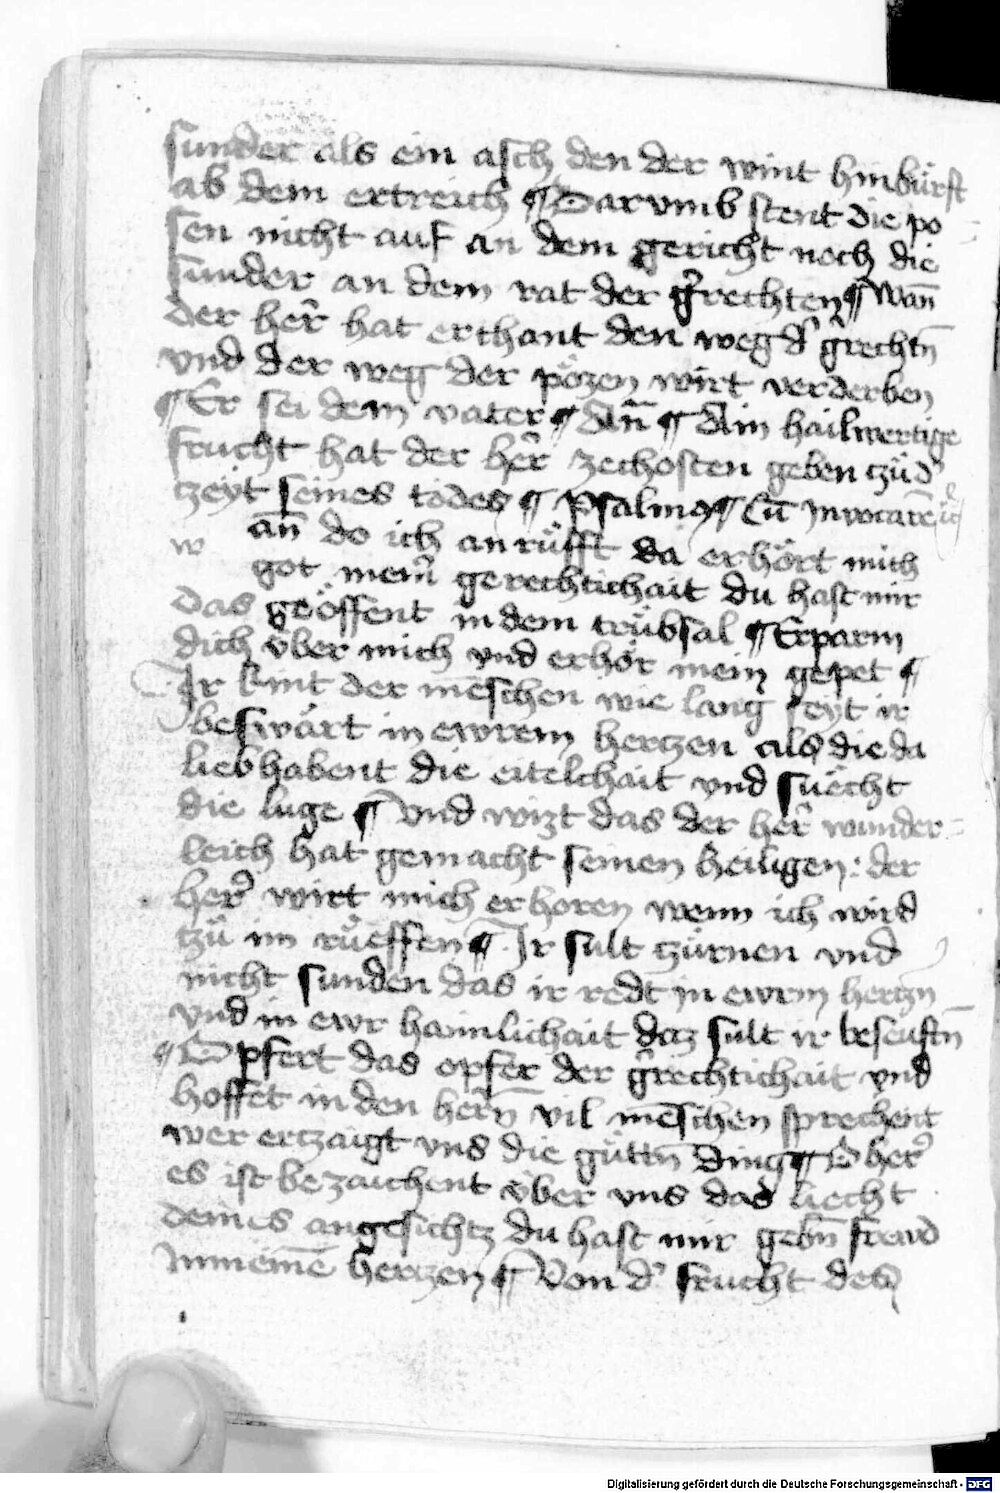 sunder als ein asch den der wint hinbürft
ab dem ertreich ¶ Darvmb stent die po
sen nicht auf an dem gericht noch die
sunder an dem rat der g̾rechten ¶ Wan̄
der her̄ hat erchant den weg d̾ g̾rechtn̄
vnd der weg der pözen wirt verderben
¶ Er sei dem vater ¶ An̄ ¶ Ain hailwertige
frucht hat der her̄ zechosten geben tzü d̾
tzeyt seines todes ¶ Psalmꝯ ¶ Cū Inuocarē
w an̄ do ich an rüfft da erhört mich
got mein̄ gerechtichait du hast mir
das geöffent in dem trübsal ¶ Erparm
dich über mich vnd erhör mein gepet ¶
Ir kint der mēschen wie lang seyt ir
beswärt in ewrem hertzen als die da
liebhabent die eitelchait vnd süecht
die luge ¶ Vnd wizt das der her̄ wunder=
leich hat gemacht seinen heiligen: der
her̾ wirt mich erhoren wenn ich wird
tzü im rüeffen ¶ Ir sult tzürnen vnd
nicht sunden das ir redt in ewrm hertzn
vnd in ewr haimlichait daz sult ir beseuftn̄
¶ Opfert das opfer der g̾rechtichait vnd
hoffet in den hern̄ vil mēschen sprechent
wer ertzaigt vns die güttn̄ ding ¶ O her̾
es ist bezaichent über vns das liecht
deines angesichtz du hast mir gebn̄ frewd
In meinē hertzen ¶ Von d̾ frucht des
Digitalisierung gefördert durch die Deutsche Forschungsgemeinschaft - DFG